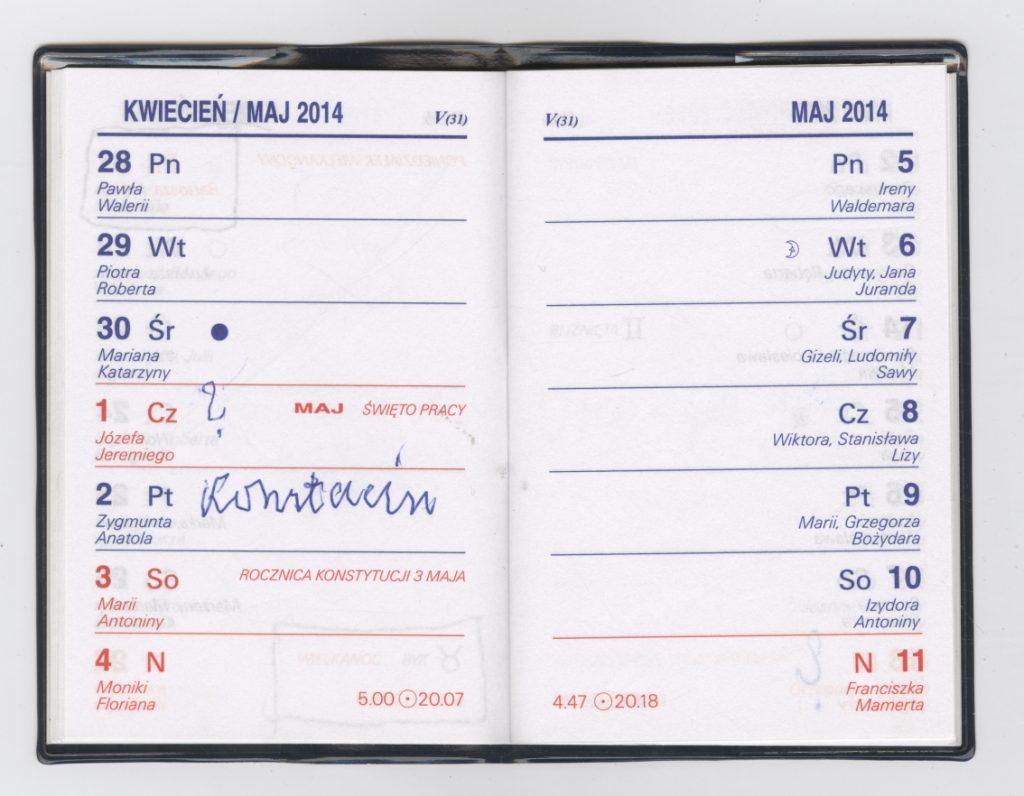 KWIECIEŃ / MAJ 2014 V(31)
28 Pn
Pawła
Walerii
29 Wt
Piotra
Roberta
30 Śr
Mariana
Katarzyny
1 Cz ? MAJ ŚWIĘTO PRACY
Józefa
Jeremiego
2 Pt Konstancin
Zygmunta
Anatola
3 So ROCZNICA KONSTYTUCJI 3 MAJA
Marii
Antoniny
4 N
Moniki
Floriana
5.00 20.07
V(31) MAJ 2014
Pn 5
Ireny
Waldemara
Wt 6
Judyty, Jana
Juranda
Śr 7
Gizeli, Ludomiły
Sawy
Cz 8
Wiktora, Stanisława
Lizy
Pt 9
Marii, Grzegorza
Bożydara
So 10
Izydora
Antoniny
N 11
Franciszka
Mamerta
4.47 20.18